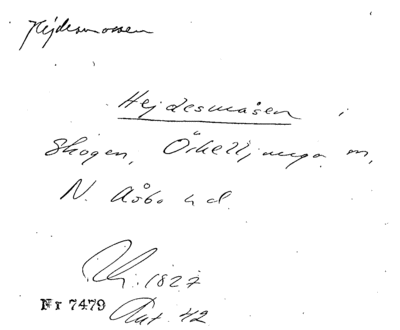 Hejdesmossen
Hejdesmåsen i
skogen, Örkelljunga sn,
N. Åsbo hd.
1827
Nr 7479 Akt. 42